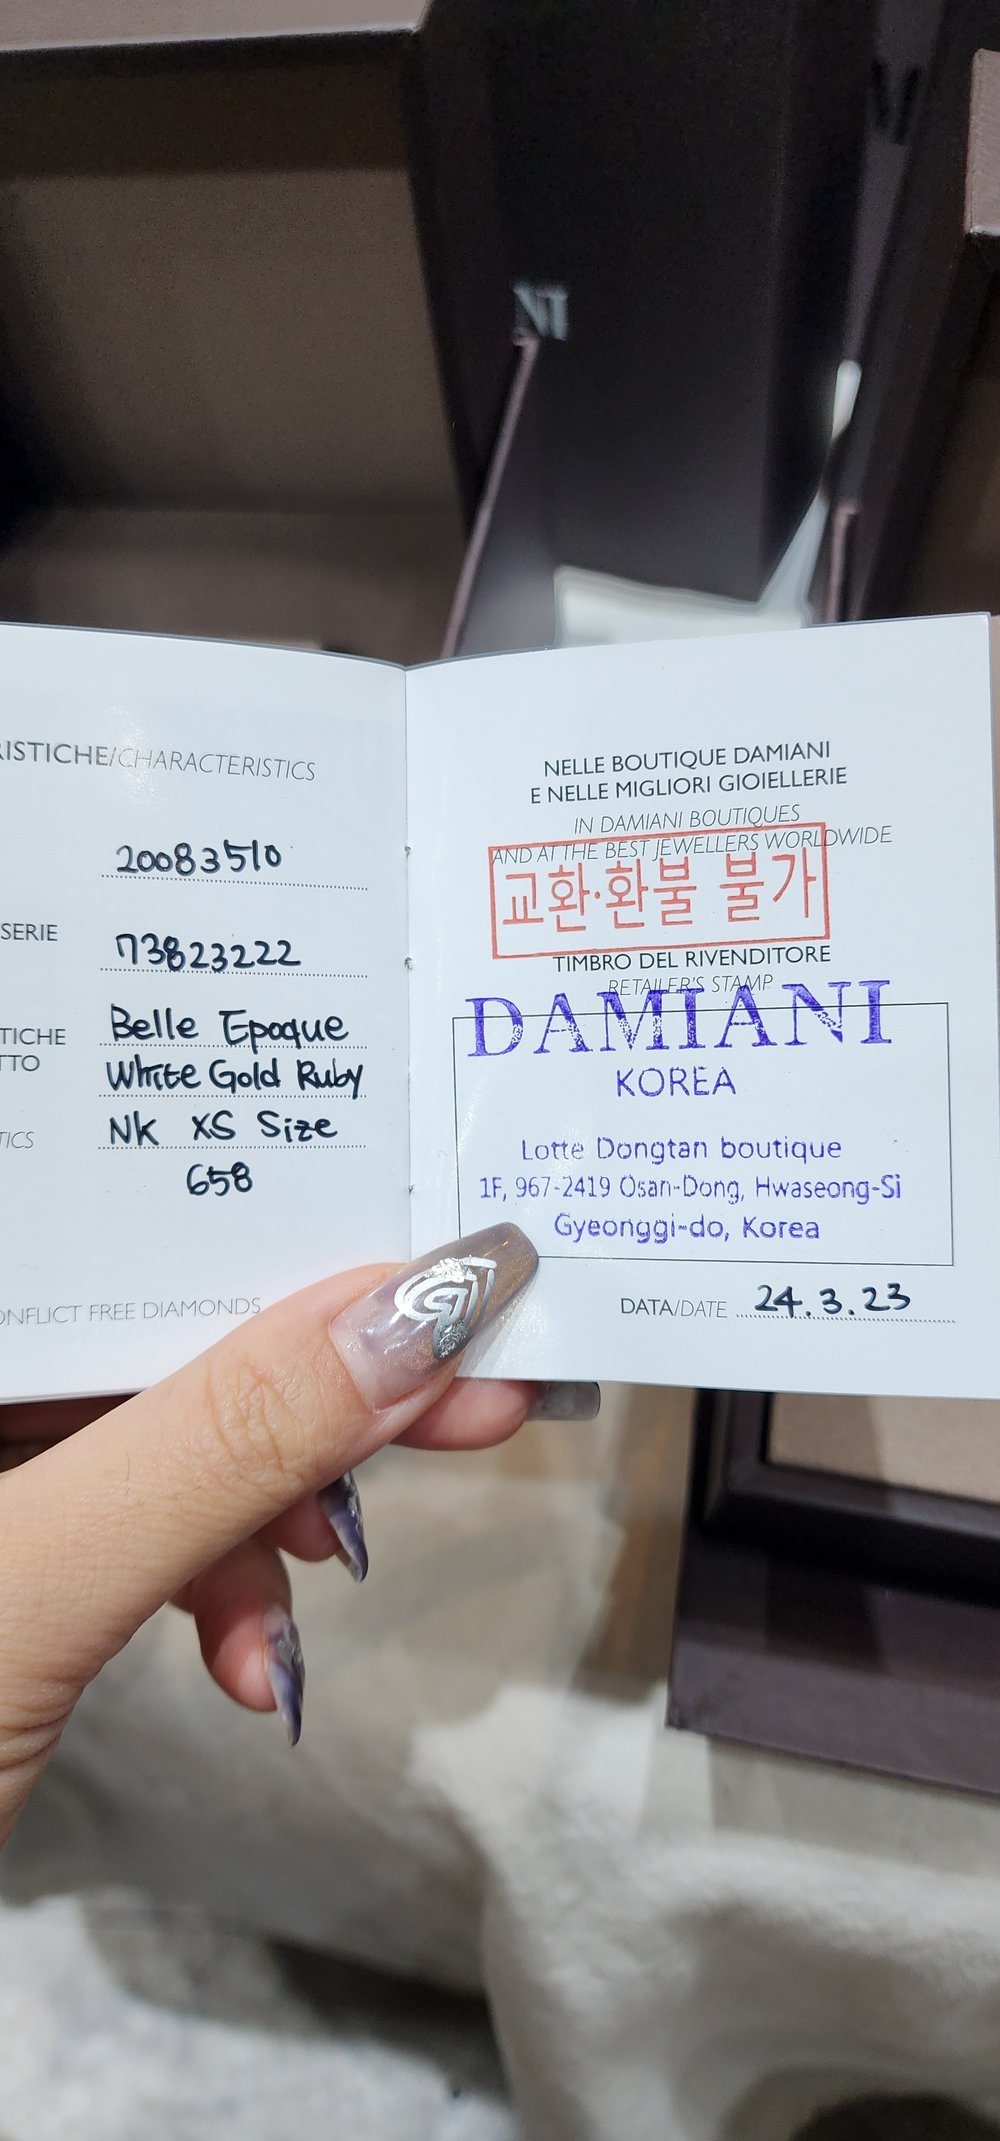 RISTICHE/CHARACTERISTICS
20083510
SERIE
73823222
TICHE
TTO
Belle Epoque
White Gold Ruby
TICS
NK XS Size
658
ONFLICT FREE DIAMONDS
NI
NELLE BOUTIQUE DAMIANI
E NELLE MIGLIORI GIOIELLERIE
IN DAMIANI BOUTIQUES
AND AT THE BEST JEWELLERS WORLDWIDE
교환·환불 불가
TIMBRO DEL RIVENDITORE
RETAILER'S STAMP
DAMIANI
KOREA
Lotte Dongtan boutique
1F, 967-2419 Osan-Dong, Hwaseong-Si
Gyeonggi-do, Korea
DATA/DATE 24.3.23